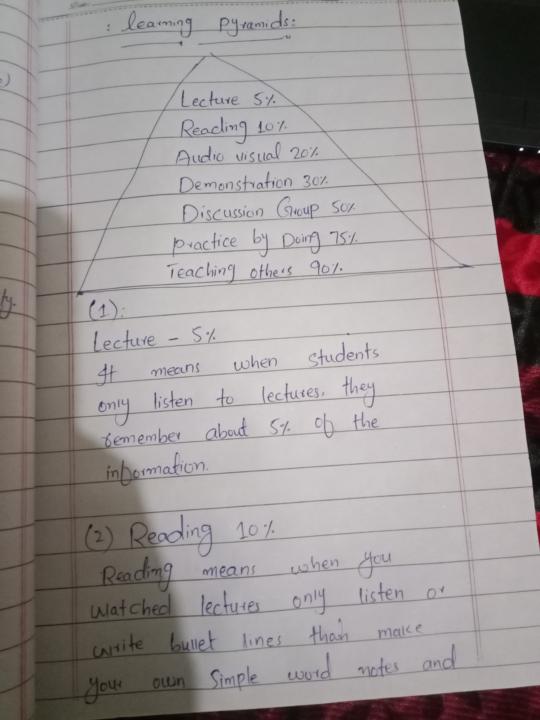 : learning Pyramids:
Lecture 5%
Reading 10%
Audio visual 20%
Demonstration 30%
Discussion Group 50%
practice by Doing 75%
Teaching others 90%
(1):
Lecture - 5%
It means when students
only listen to lectures, they
remember about 5% of the
information.
(2) Reading 10%
Reading means when you
watched lectures only listen or
write bullet lines than make
your own simple word notes and